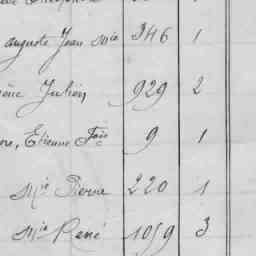 auguste Jean Mie 346 1
Julien 929 2
Etienne Fois 9 1
Mie Pierre 220 1
Mie René 1059 3